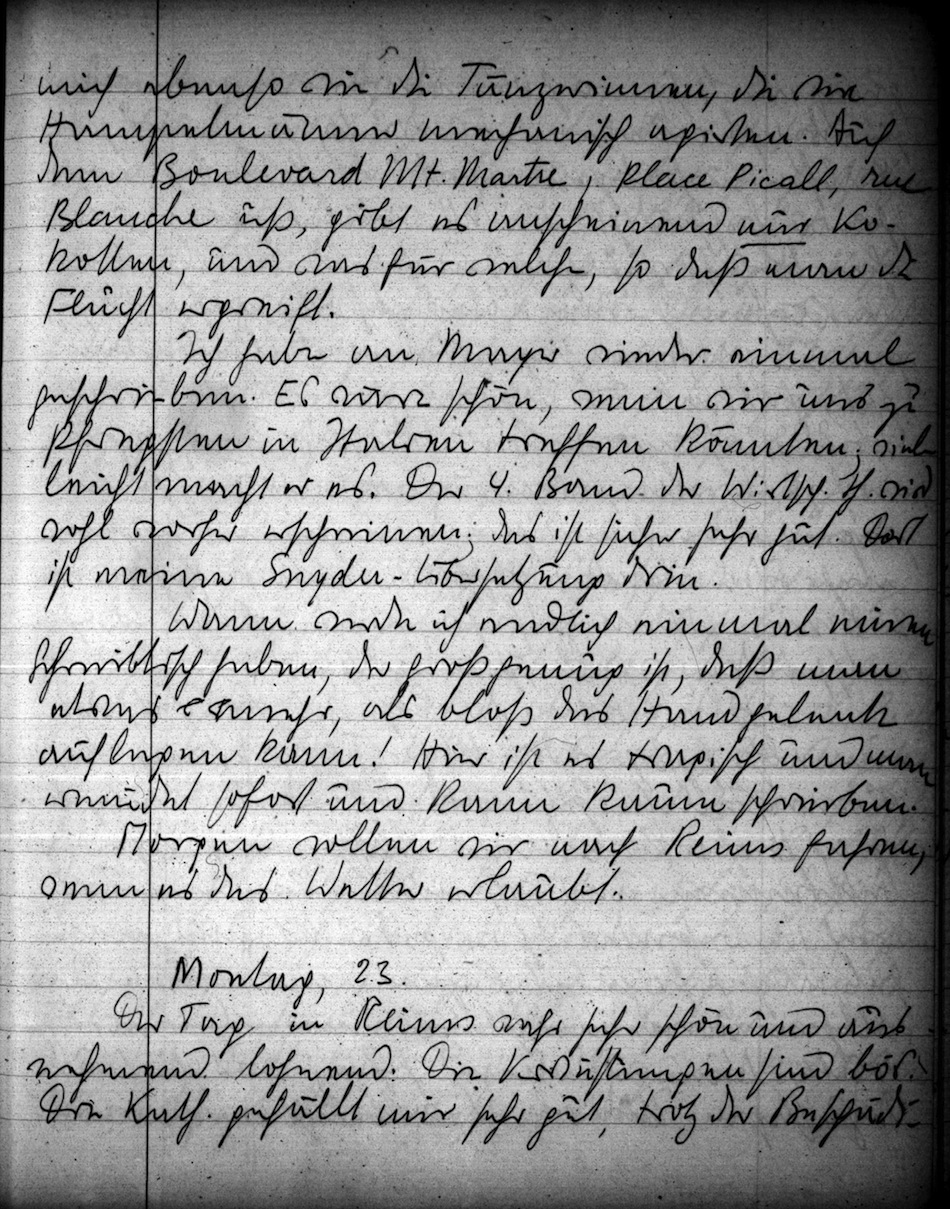 mich ebenso wie die Tänzerinnen, die wie
Hampelmänner mechanisch agierten. Auf
dem Boulevard Mt. Martre, Place Picall, rue
Blanche usf., gibt es anscheinend nur Ko-
kotten, und was für welche, so daß man die
Flucht ergreift.
Ich habe an Mayer wieder einmal
geschrieben. Es wäre schön, wenn wir uns zu
Pfingsten in Italien treffen könnten; viel-
leicht macht er es. Der 4. Band der Wirtsch. Th. wird
wohl vorher erscheinen; das ist sicher sehr gut. Dort
ist meine Snyder-Übersetzung drin.
Wann werde ich endlich einmal einen
Schreibtisch haben, der groß genug ist, daß man
etwas mehr, als bloß das Handgelenk
auflegen kann! Hier ist es tragisch und man
ermüdet sofort und kann kaum schreiben.
Morgen wollen wir nach Reims fahren,
wenn es das Wetter erlaubt.
Montag, 23.
Der Tag in Reims war sehr schön und aus-
nehmend lohnend. Die Verwüstungen sind bös.
Die Kath. gefällt mir sehr gut, trotz der Beschädi-